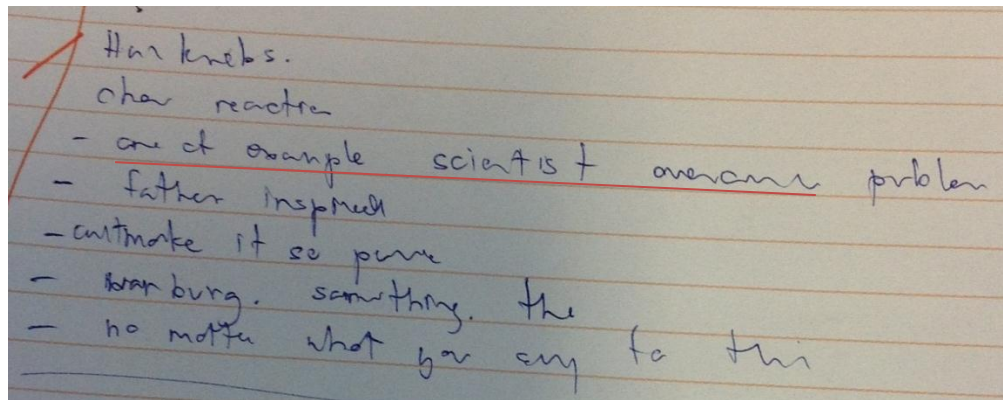 Han krebs.
chan reaction
- one of example scientist overcame problem
- father inspired
- cultmake it so pure
- warburg. something. the
- no matter what you any to thi